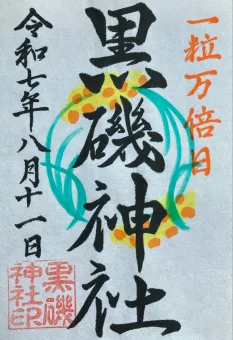 一粒万倍日
黒磯神社
令和七年八月十一日
黒磯
神社印